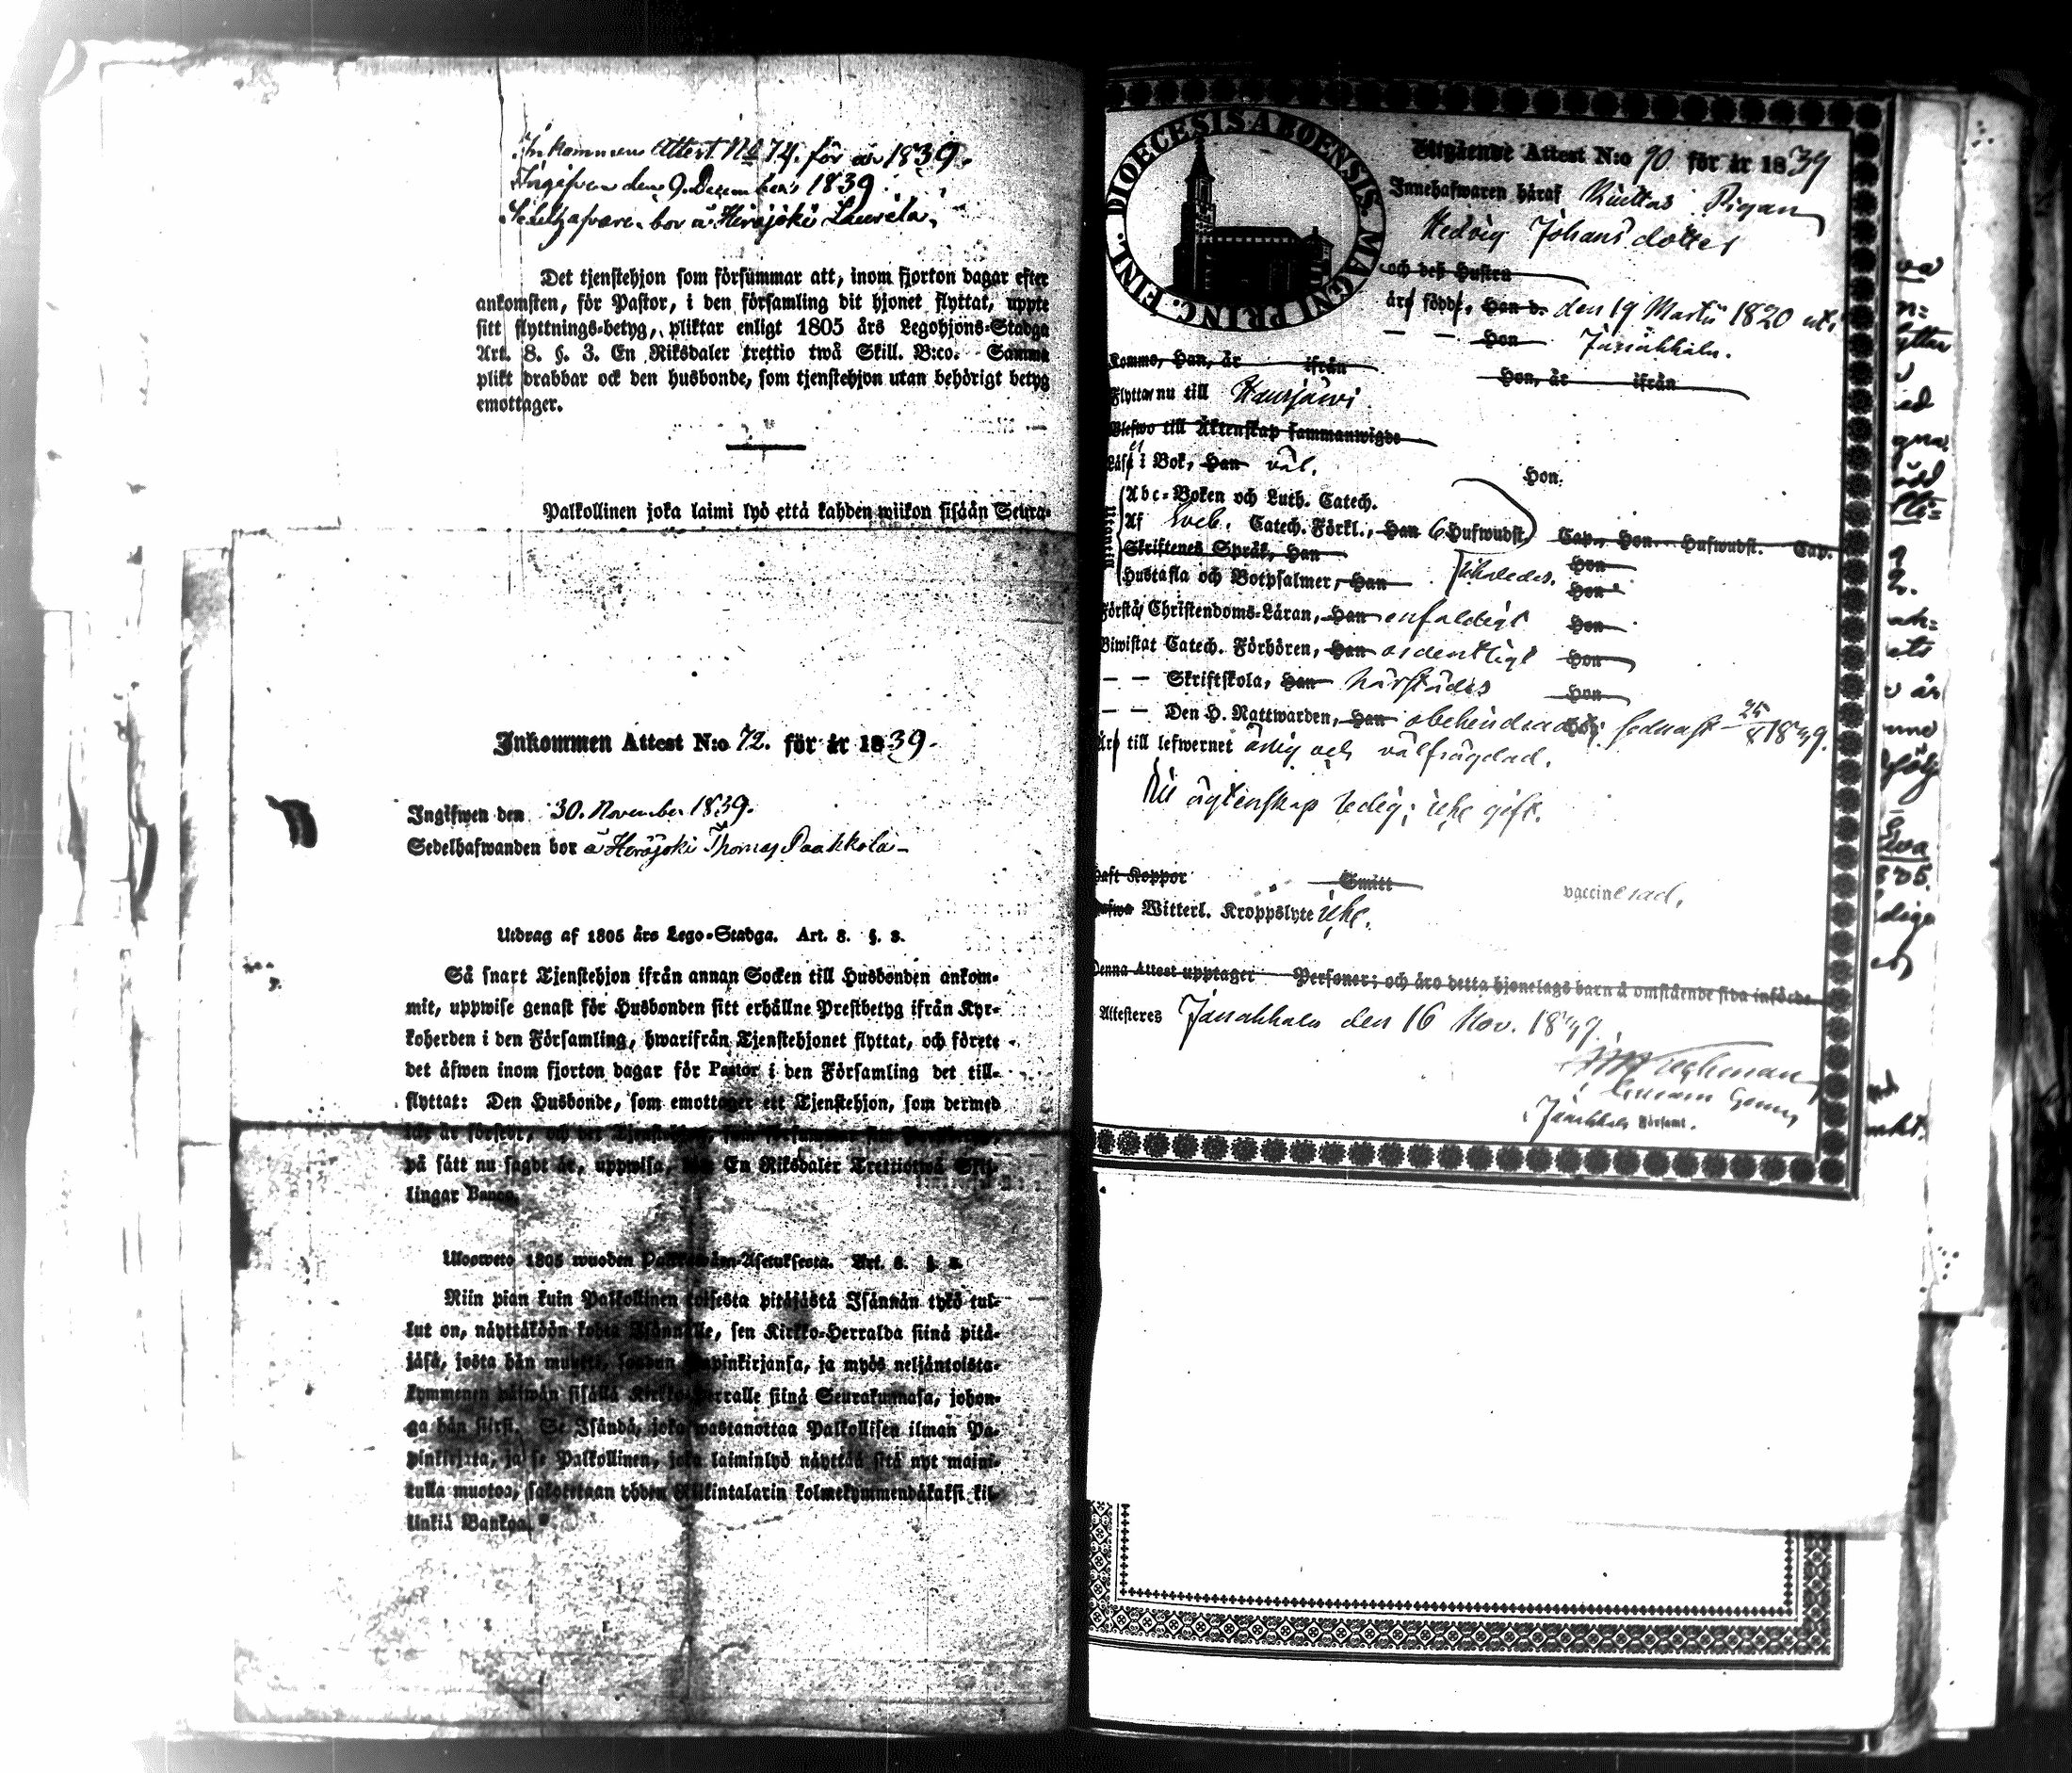 Inkommen Attest No 74. för år 1839.
Ingifven den 9. December 1839.
Sedelhafvaren bor å Herajoki Laurela.
Det tjenstehjon som försummar att, inom fjorton dagar efter
ankomsten, för Pastor, i den församling dit hjonet flyttat, uppte
sitt flyttnings-betyg, pliktar enligt 1805 års Legohjons-Stadga
Art. 8. §. 3. En Riksdaler trettio twå Skill. B:co. Samma
plikt drabbar ock den husbonde, som tjenstehjon utan behörigt betyg
emottager.
Palkollinen joka laimi lyö että kahden wiikon sisään Seura-
Inkommen Attest N:o 72. för år 1839.
Ingifwen den 30. November 1839.
Sedelhafwanden bor å Herajoki Thomas Paakkola
Utdrag af 1805 års Lego-Stadga. Art. 8. §. 3.
Så snart Tjenstehjon ifrån annan Socken till Husbonden ankom-
mit, uppwise genast för Husbonden sitt erhållne Prestbetyg ifrån Kyr-
koherden i den Församling, hwarifrån Tjenstehjonet flyttat, och förete
det äfwen inom fjorton dagar för Pastor i den Församling det till-
flyttat: Den Husbonde, som emottager ett Tjenstehjon, som dermed
på sätt nu sagdt är, uppwisa, En Riksdaler Trettiotwå Skil-
lingar Banco.
Ulosweto 1805 wuoden Palkowäen-Asetuksesta. Art. 8. §. 3.
Niin pian kuin Palkollinen toisesta pitäjästä Isännän tykö tul-
lut on, näyttäköön kohta Isännälle, sen Kirkko-Herralda siinä pitä-
jäsä, josta hän muutti, saadun Papinkirjansa, ja myös neljäntoista-
kymmenen päiwän sisällä Kirkko-Herralle siinä Seurakunnasa, johon-
ga hän siirsi. Se Isändä, joka wastanottaa Palkollisen ilman Pa-
pinkirjata, ja se Palkollinen, joka laiminlyö näyttää sitä nyt maini-
tulla muotoa, sakotetaan yhden Riikintalarin kolmekymmendäkaksi kil-
linkiä Bankoa.
DIOECESIS ABOENSIS. MAGNI PRINC. FINL.
Utgående Attest N:o 90. för år 1839
Innehafwaren häraf Pigan
Hedvig Johansdotter
och deß Hustru
äro födde, Han d. den 19 Martii 1820 uti
— — Hon Janakkala.
Komne, Han, är ifrån Hon, är ifrån
Flyttar nu till Hausjärvi
Blefwo till Äktenskap sammanwigde
Läser i Bok, Han väl. Hon.
Abc-Boken och Luth. Catech.
Utantill
Af Sveb. Catech. Förkl., Han 6 Hufwudst. Cap., Hon. Hufwudst. Cap.
Skriftenes Språk, Han Hon
Hustafla och Botpsalmer, Han Hon
Förstå Christendoms-Läran, Han enfaldigt Hon
Biwistat Catech. Förhören, Han ordentligt Hon
— — Skriftskola, Han härstädes Hon
— — Den H. Nattwarden, Han obehindrad Hon sednast 25/8 1839.
Äro till lefwernet ärlig och välfrägdad.
Till ägtenskap ledig; icke gift.
Haft Koppor Smitt vaccinerad,
Hafwa Witterl. Kroppslyte icke.
Denna Attest upptager Personer; och äro detta hjonelags barn å omstående sida införde.
Attesteres Janakkala den 16 Nov. 1839.
Janakkala Församl.